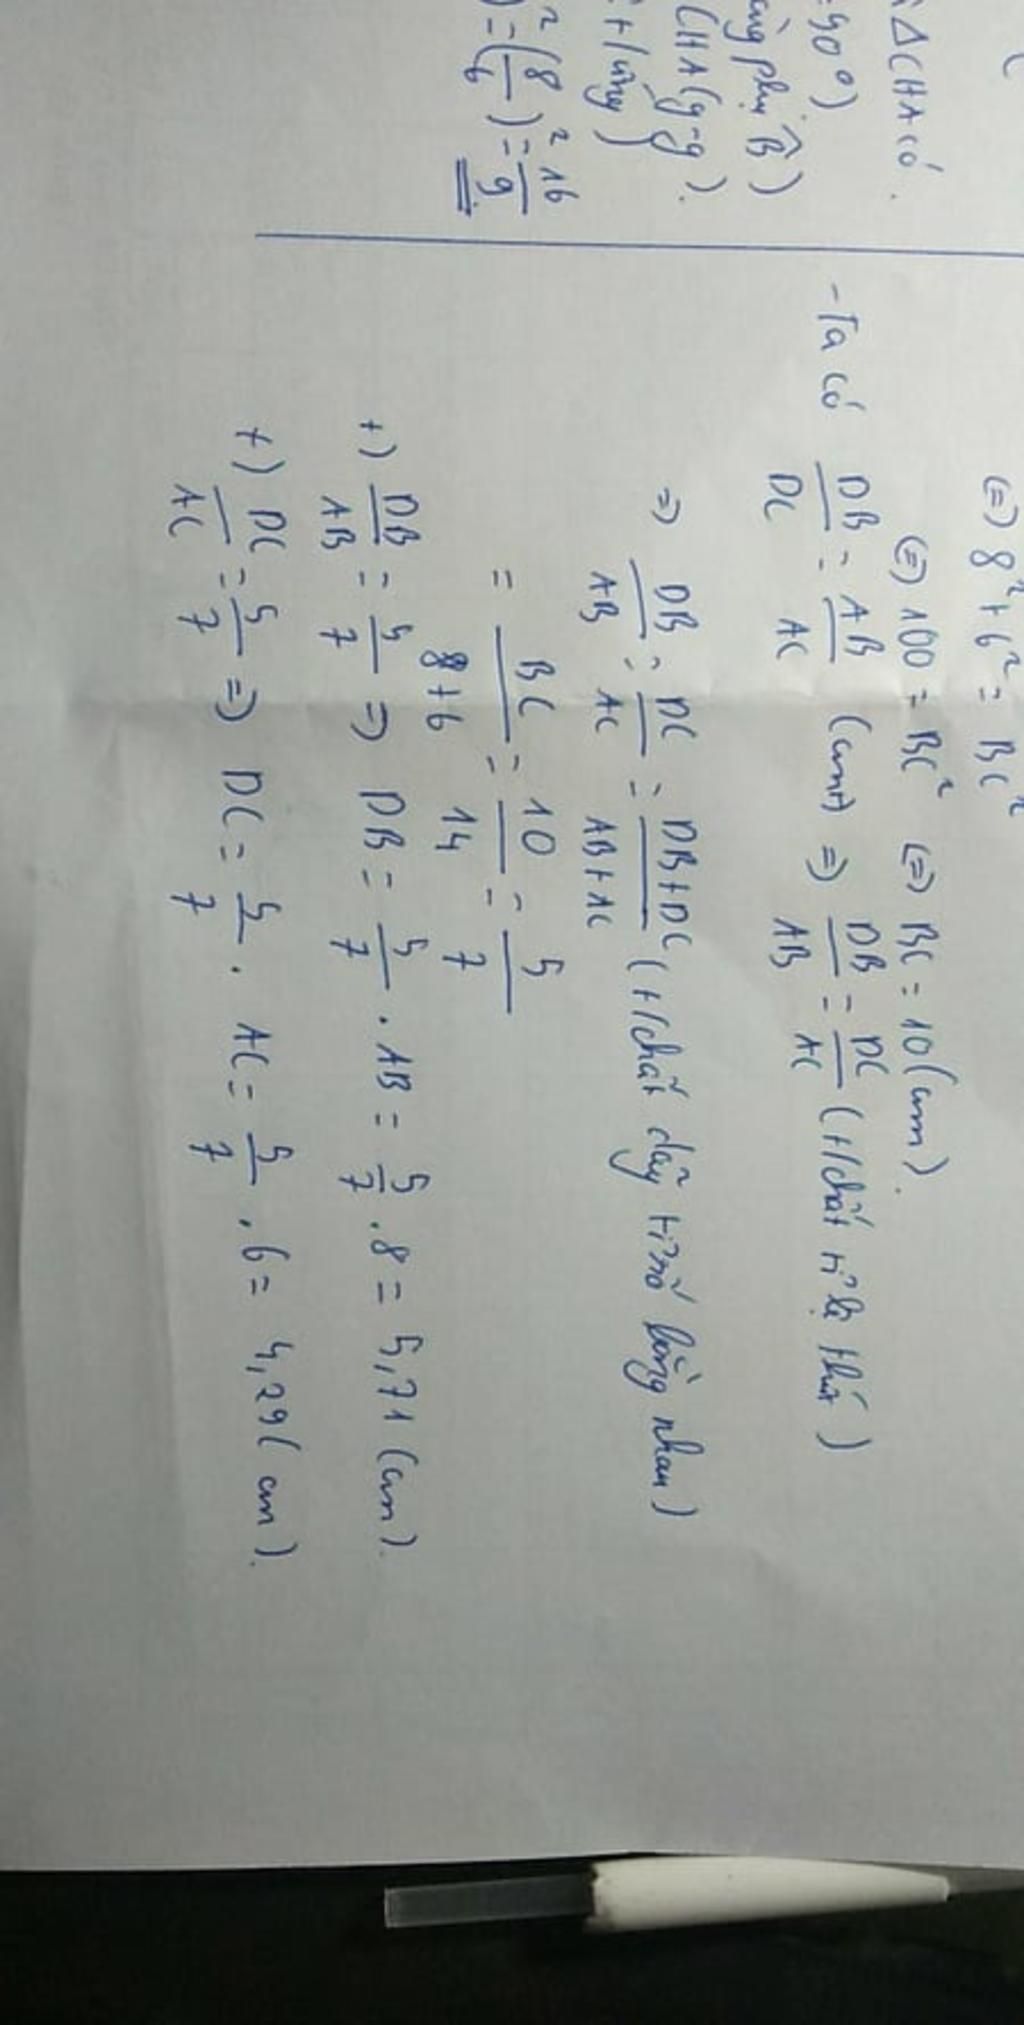 ΔCHA có.
=90°)
cùng phụ B̂)
CHA (g-g).
t/ứng)
)² = (8/6)² = 16/9
(=) 8² + 6² = BC²
(=) 100 = BC² (=) BC = 10 (cm).
- Ta có DB/DC = AB/AC (cmt) =) DB/AB = DC/AC (t/chất tỉ lệ thức)
=) DB/AB = DC/AC = DB+DC/AB+AC (t/chất dãy tỉ số bằng nhau)
= BC/8+6 = 10/14 = 5/7
+) DB/AB = 5/7 =) DB = 5/7 . AB = 5/7 . 8 = 5,71 (cm).
+) DC/AC = 5/7 =) DC = 5/7 . AC = 5/7 . 6 = 4,29 (cm).